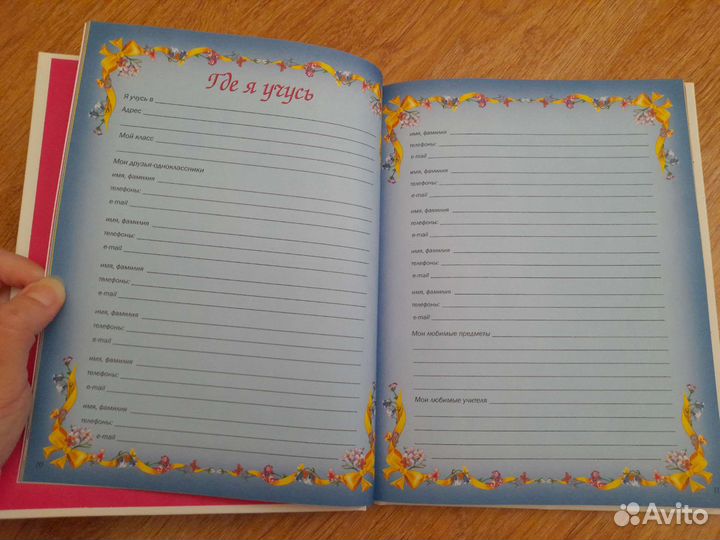 Где я учусь
Я учусь в
Адрес
Мой класс
Мои друзья-одноклассники
имя, фамилия
телефоны:
e-mail
имя, фамилия
телефоны:
e-mail
имя, фамилия
телефоны:
e-mail
имя, фамилия
телефоны:
e-mail
имя, фамилия
телефоны:
e-mail
имя, фамилия
телефоны:
e-mail
имя, фамилия
телефоны:
e-mail
имя, фамилия
телефоны:
e-mail
имя, фамилия
телефоны:
e-mail
имя, фамилия
телефоны:
e-mail
имя, фамилия
телефоны:
e-mail
Мои любимые предметы
Мои любимые учителя
Avito